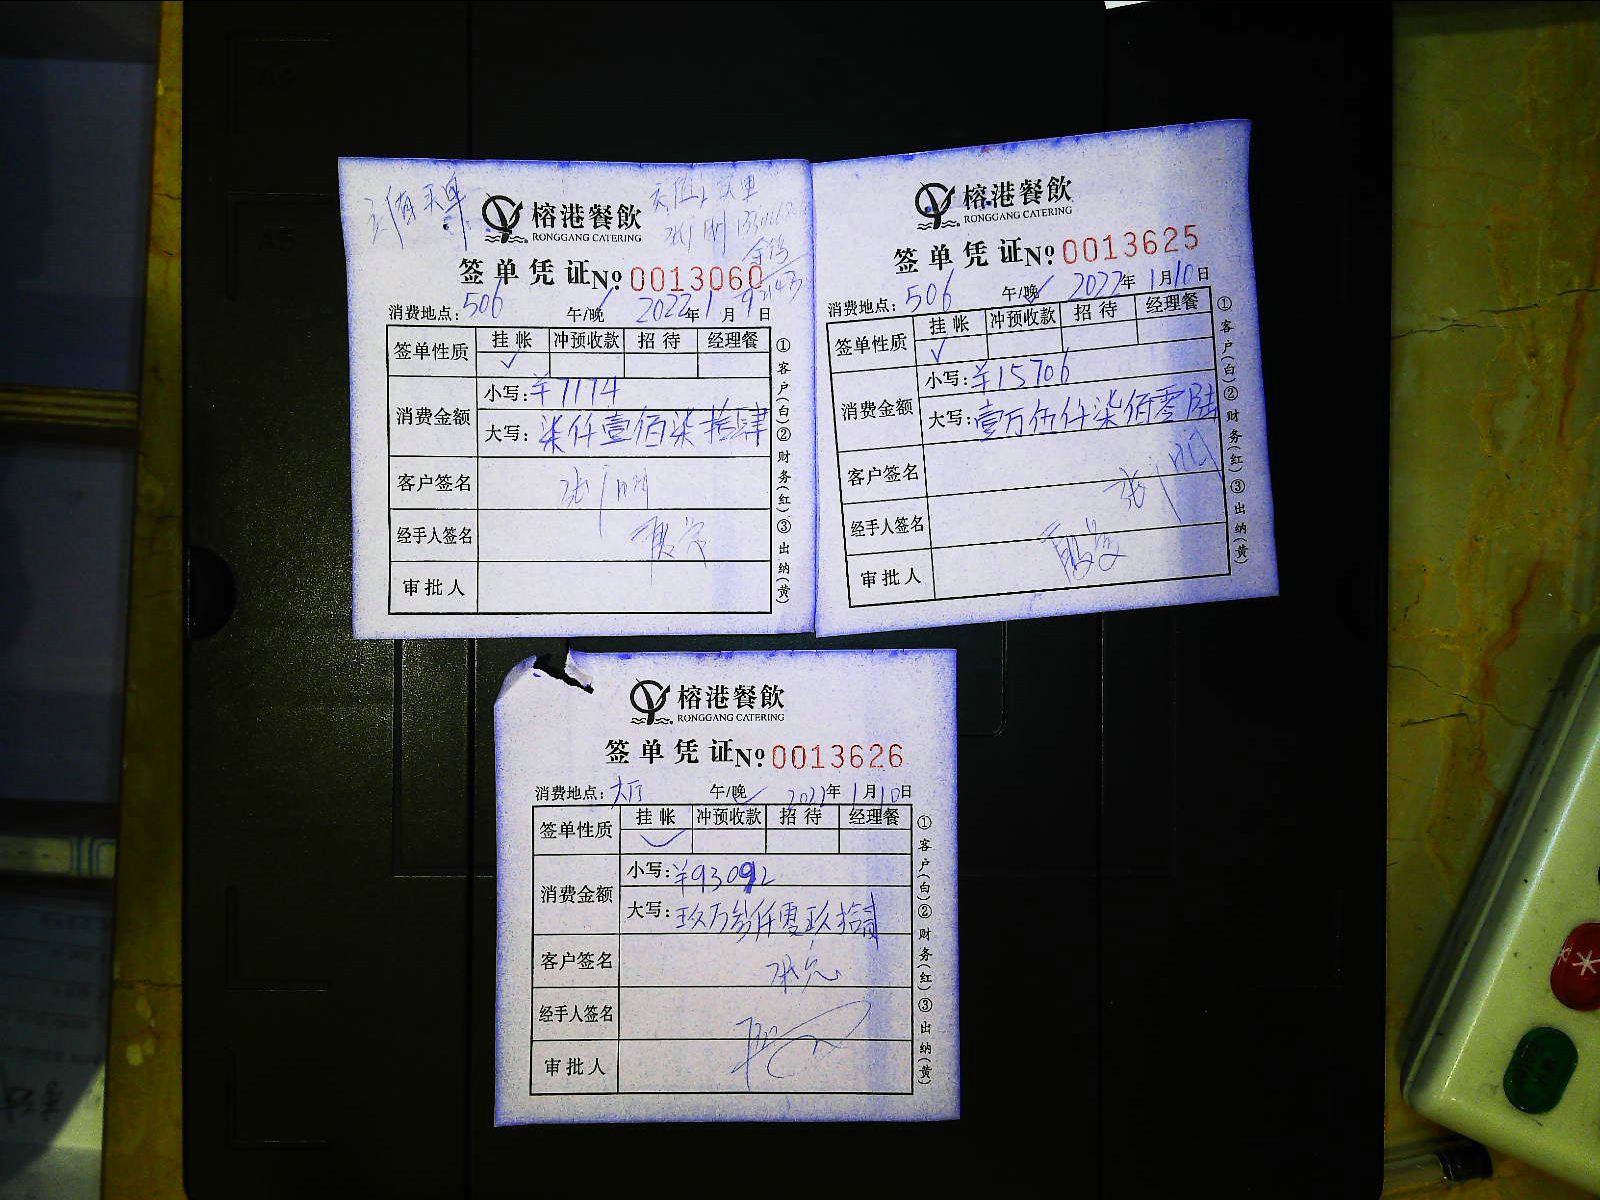 榕港餐飲
RONGGANG CATERING
签单凭证№ 0013060
消费地点: 506 午/晚 2022年1月9日
签单性质 挂帐 冲预收款 招待 经理餐
✓
消费金额 小写: ¥7174
大写: 柒仟壹佰柒拾肆
客户签名
经手人签名
审批人
①客户(白)②财务(红)③出纳(黄)
榕港餐飲
RONGGANG CATERING
签单凭证№ 0013625
消费地点: 506 午/晚 2022年1月10日
签单性质 挂帐 冲预收款 招待 经理餐
✓
消费金额 小写: ¥15706
大写: 壹万伍仟柒佰零陆
客户签名
经手人签名
审批人
①客户(白)②财务(红)③出纳(黄)
榕港餐飲
RONGGANG CATERING
签单凭证№ 0013626
消费地点: 大厅 午/晚 2022年1月10日
签单性质 挂帐 冲预收款 招待 经理餐
✓
消费金额 小写: ¥93092
大写: 玖万叁仟零玖拾贰
客户签名
经手人签名
审批人
①客户(白)②财务(红)③出纳(黄)